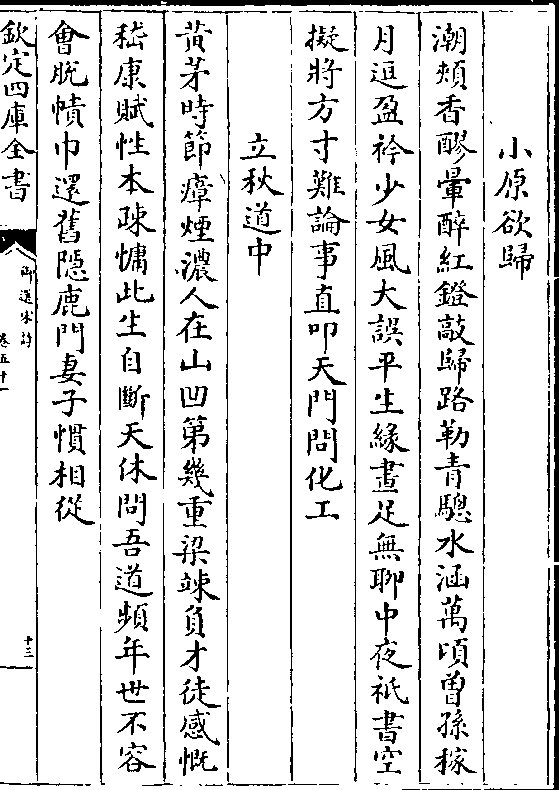 小原欲歸
潮頰香醪暈醉紅鐙敲歸路勒青驄水涵萬頃曽孫稼
月逗盈衿少女風大誤平生緣畫足無聊中夜祇書空
擬將方寸難論事直叩天門問化工
立秋道中
黄茅時節瘴煙濃人在山凹第幾重梁竦負才徒感慨
嵇康賦性本疎慵此生自斷天休問吾道頻年世不容
會脱幘巾還舊隠鹿門妻子慣相從
欽定四庫全書
御選宋詩
卷五十一
十三